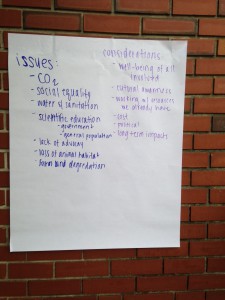 issues:
- CO2
- social equality
- water & sanitation
- scientific education
- government
- general population
- lack of advocacy
- loss of animal habitat
- farm land degredation
considerations:
- well-being of all
involved
- cultural awareness
- working w/ resources
we already have
- cost
- political
- long term impacts